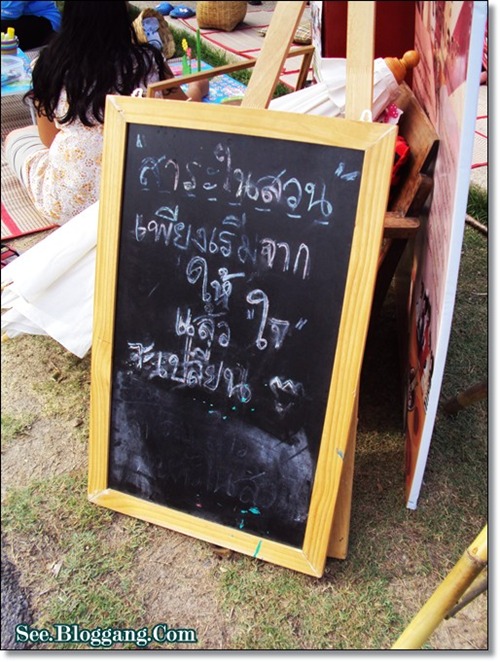 "สาระในสวน"
เพียงเริ่มจาก
ให้
แล้ว "ใจ"
จะเปลี่ยน
See.Bloggang.Com